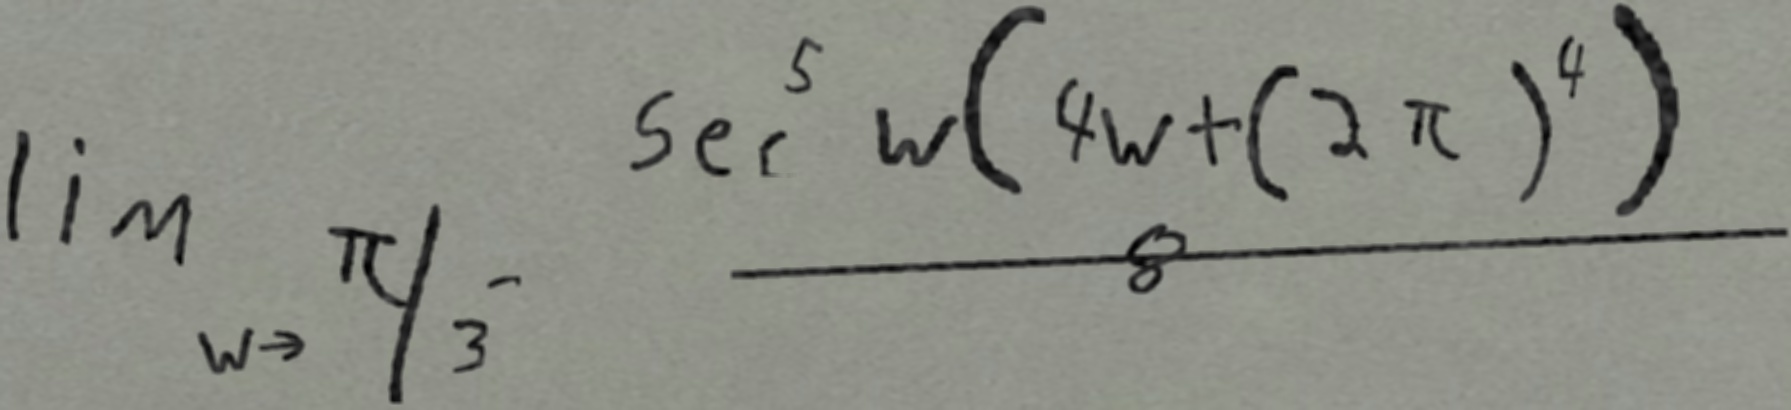 \lim_{w \to \pi/3^-} \frac{\sec^5 w (4w + (2\pi)^4)}{8}